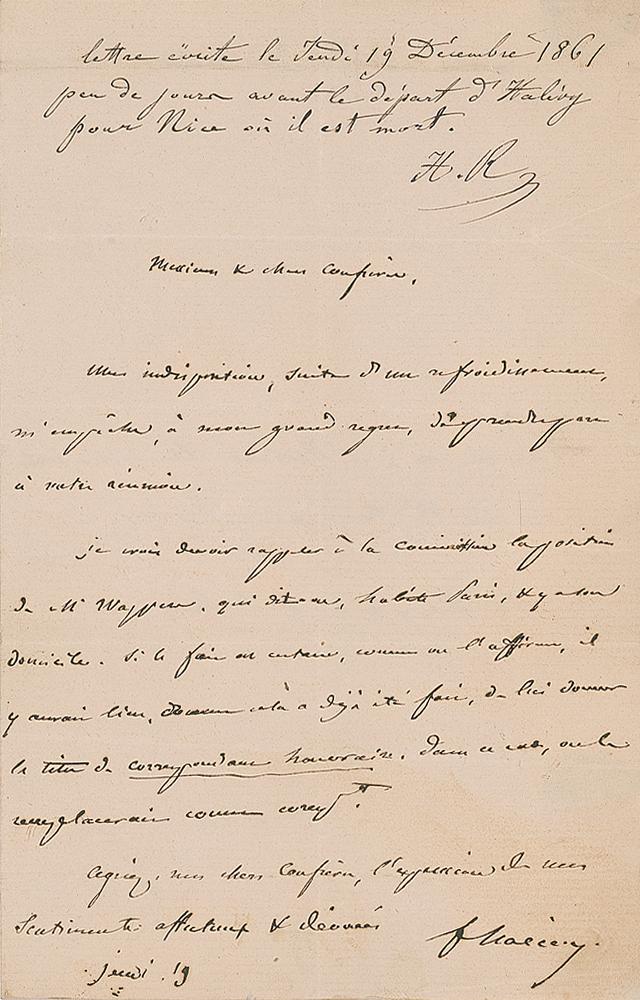 lettre écrite le Jeudi 19 Décembre 1861
peu de jours avant le départ d'Halévy
pour Nice où il est mort.
H. R
Messieurs & chers Confrères,
Une indisposition, suite d'un refroidissement,
m'empêche, à mon grand regret, de prendre part
à notre réunion.
je crois devoir rappeler à la commission la position
de Mr Wappers, qui dit-on, habite Paris, & y a son
domicile. Si le fait est certain, comme on l'affirme, il
y aurait lieu, comme cela a déjà été fait, de lui donner
le titre de correspondant honoraire. dans ce cas, on le
remplacerait comme corresp.t
Agréez, mes chers Confrères, l'expression de mes
Sentiments affectueux & dévoués
fhalévy.
jeudi 19